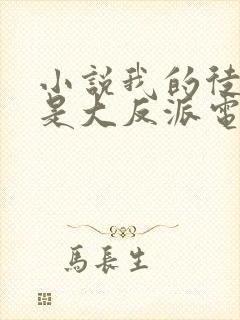 小說我的徒
是大反派電
馬長生